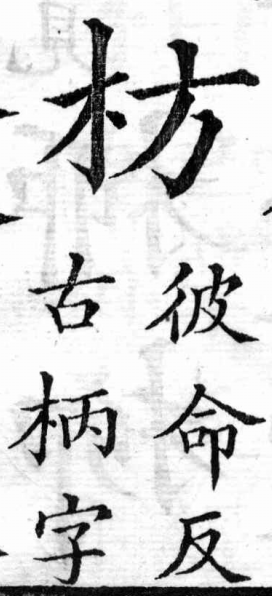 枋
彼命反
古柄字